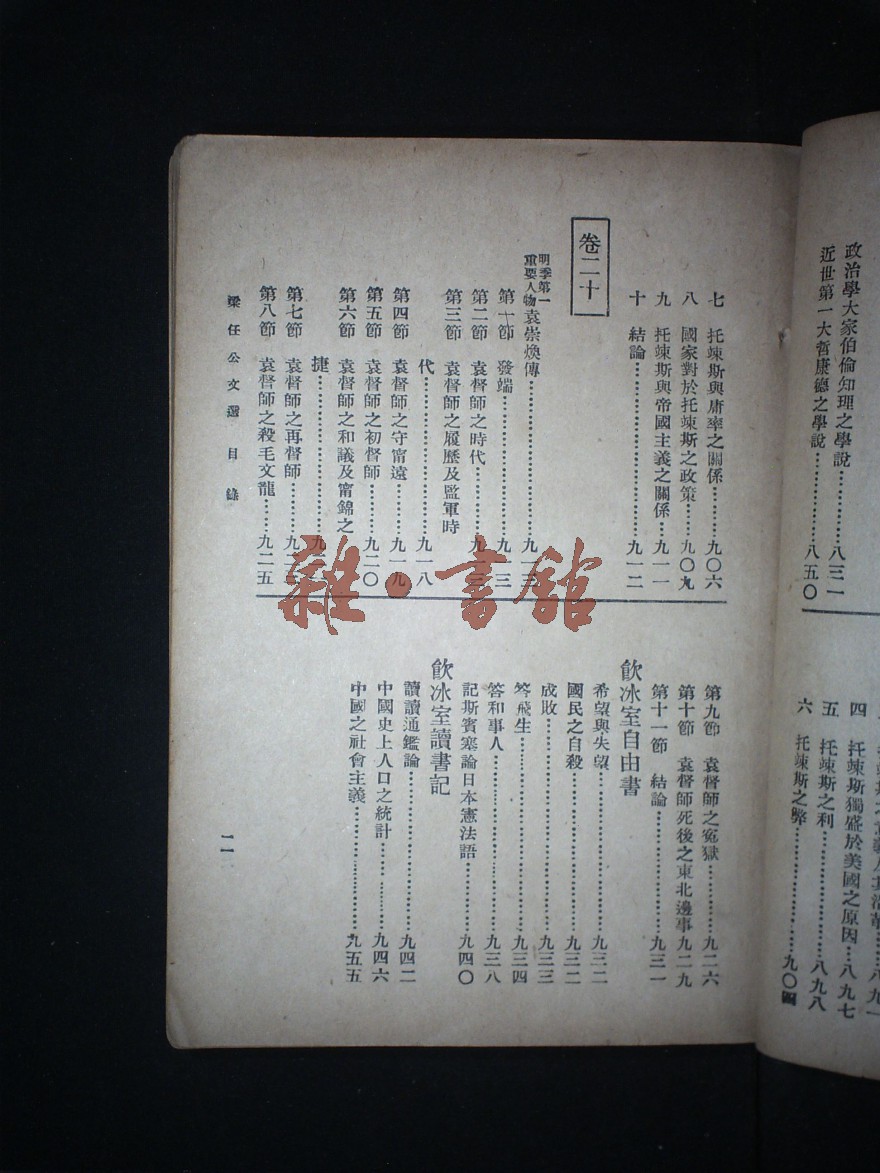 政治學大家伯倫知理之學說……八三一
近世第一大哲康德之學說……八五〇
四 托竦斯獨盛於美國之原因……八九七
五 托竦斯之利……八九八
六 托竦斯之弊……九〇四
七 托竦斯與庸率之關係……九〇六
八 國家對於托竦斯之政策……九〇九
九 托竦斯與帝國主義之關係……九一一
十 結論……九一二
卷二十
明季第一重要人物袁崇煥傳……九一三
第十節 發端……九一三
第二節 袁督師之時代……九一三
第三節 袁督師之履歷及監軍時
代……九一八
第四節 袁督師之守甯遠……九一九
第五節 袁督師之初督師……九二〇
第六節 袁督師之和議及甯錦之
捷……九二
第七節 袁督師之再督師……九二
第八節 袁督師之殺毛文龍……九二五
第九節 袁督師之冤獄……九二六
第十節 袁督師死後之東北邊事九二九
第十一節 結論……九三一
飲冰室自由書
希望與失望……九三二
國民之自殺……九三二
成敗……九三三
答飛生……九三四
答和事人……九三八
記斯賓塞論日本憲法語……九四〇
飲冰室讀書記
讀讀通鑑論……九四二
中國史上人口之統計……九四六
中國之社會主義……九五五
梁任公文選 目錄
一一
雜·書館